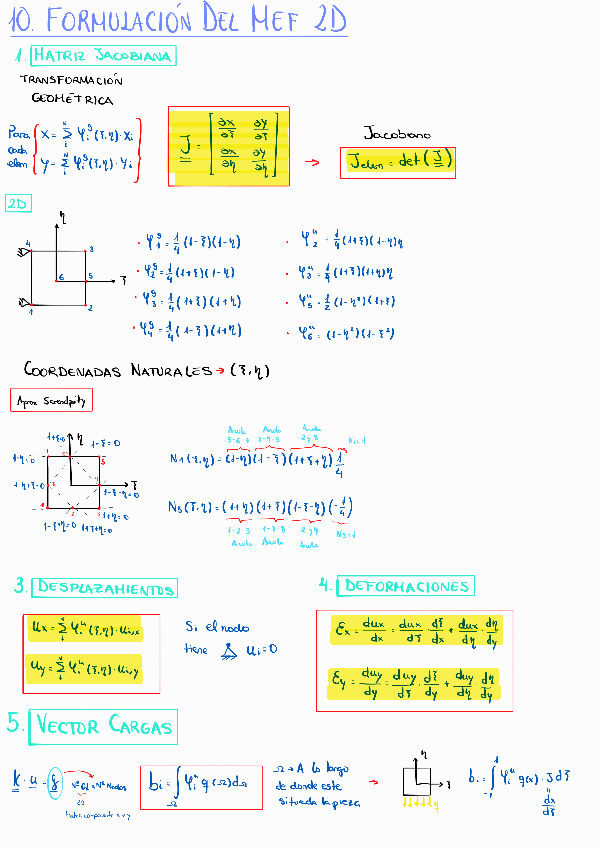 10. FORMULACIÓN DEL MEF 2D
1. MATRIZ JACOBIANA
TRANSFORMACIÓN
GEOMÉTRICA
Para cada elem { x = Σ φᵢᵍ(ξ,η)·xᵢ
y = Σ φᵢᵍ(ξ,η)·yᵢ }
J = [ ∂x/∂ξ ∂y/∂ξ
∂x/∂η ∂y/∂η ]
→
Jacobiano
Jelem = det(J)
2D
η
ξ
4 3
6 5
1 2
• φ₁ᵍ = 1/4 (1-ξ)(1-η)
• φ₂ᵍ = 1/4 (1+ξ)(1-η)
• φ₃ᵍ = 1/4 (1+ξ)(1+η)
• φ₄ᵍ = 1/4 (1-ξ)(1+η)
• φ₂ᵘ = 1/4 (1+ξ)(1-η)η
• φ₃ᵘ = 1/4 (1+ξ)(1+η)η
• φ₅ᵘ = 1/2 (1-η²)(1+ξ)
• φ₆ᵘ = (1-η²)(1-ξ²)
COORDENADAS NATURALES → (ξ,η)
Aprox Serendipity
η
1-ξ=0
1-η=0
5
ξ
1-ξ-η=0
1+η=0
1-ξ+η=0
1+ξ+η=0
Anula 5-6-7
Anula 3-4-5
Anula 2 y 8
N₁=1
N₁(ξ,η) = (1-η)(1-ξ)(1+ξ+η) 1/4
N₅(ξ,η) = (1+η)(1+ξ)(1-ξ-η)(-1/4)
1-2-3 Anula
1-7-8 Anula
2 y 4 Anula
N₅=1
3. DESPLAZAMIENTOS
ux = Σ φᵢᵘ(ξ,η)·uᵢ,x
uy = Σ φᵢᵘ(ξ,η)·uᵢ,y
Si el nodo
tiene uᵢ=0
4. DEFORMACIONES
Ɛx = dux/dx = dux/dξ · dξ/dx + dux/dη · dη/dy
Ɛy = duy/dy = duy/dξ · dξ/dy + duy/dη · dη/dy
5. VECTOR CARGAS
k · u = f
Nº GL × Nº Nodos
2D
bᵢ = ∫Ω φᵢᵘ q(Ω)dΩ
Ω → A lo largo
de donde este
situada la pieza
→
η
ξ
q
bᵢ = ∫₋₁¹ φᵢᵘ q(x)·J dξ
"
dx/dξ